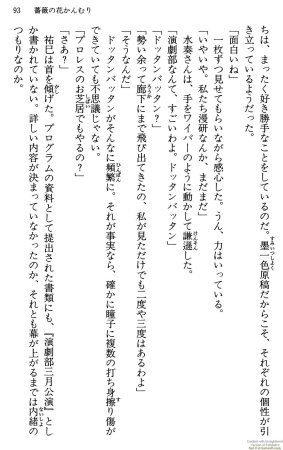 93　薔薇の花かんむり
ちは、まったく好き勝手なことをしているのだ。墨一色原稿だからこそ、それぞれの個性が引
き立っているようだった。
「面白いね」
一枚ずつ見せてもらいながら感心した。うん、力はいっている。
「いやいや。私たち漫研なんか、まだまだ」
水奏さんは、手をワイパーのように動かして謙遜した。
「演劇部なんて、すごいわよ。ドッタンバッタン」
「ドッタンバッタン？」
「勢い余って廊下にまで飛び出てきたの、私が見ただけでも二度や三度はあるわよ」
「そうなんだ」
ドッタンバッタンがそんなに頻繁に。それが事実なら、確かに瞳子に複数の打ち身擦り傷が
できていても不思議じゃない。
「プロレスのお芝居でもやるの？」
「さあ？」
祐巳は首を傾げた。プログラムの資料として提出された書類にも、『演劇部三月公演』とし
か書かれていない。詳しい内容が決まっていなかったのか、それとも幕が上がるまでは内緒の
つもりなのか。